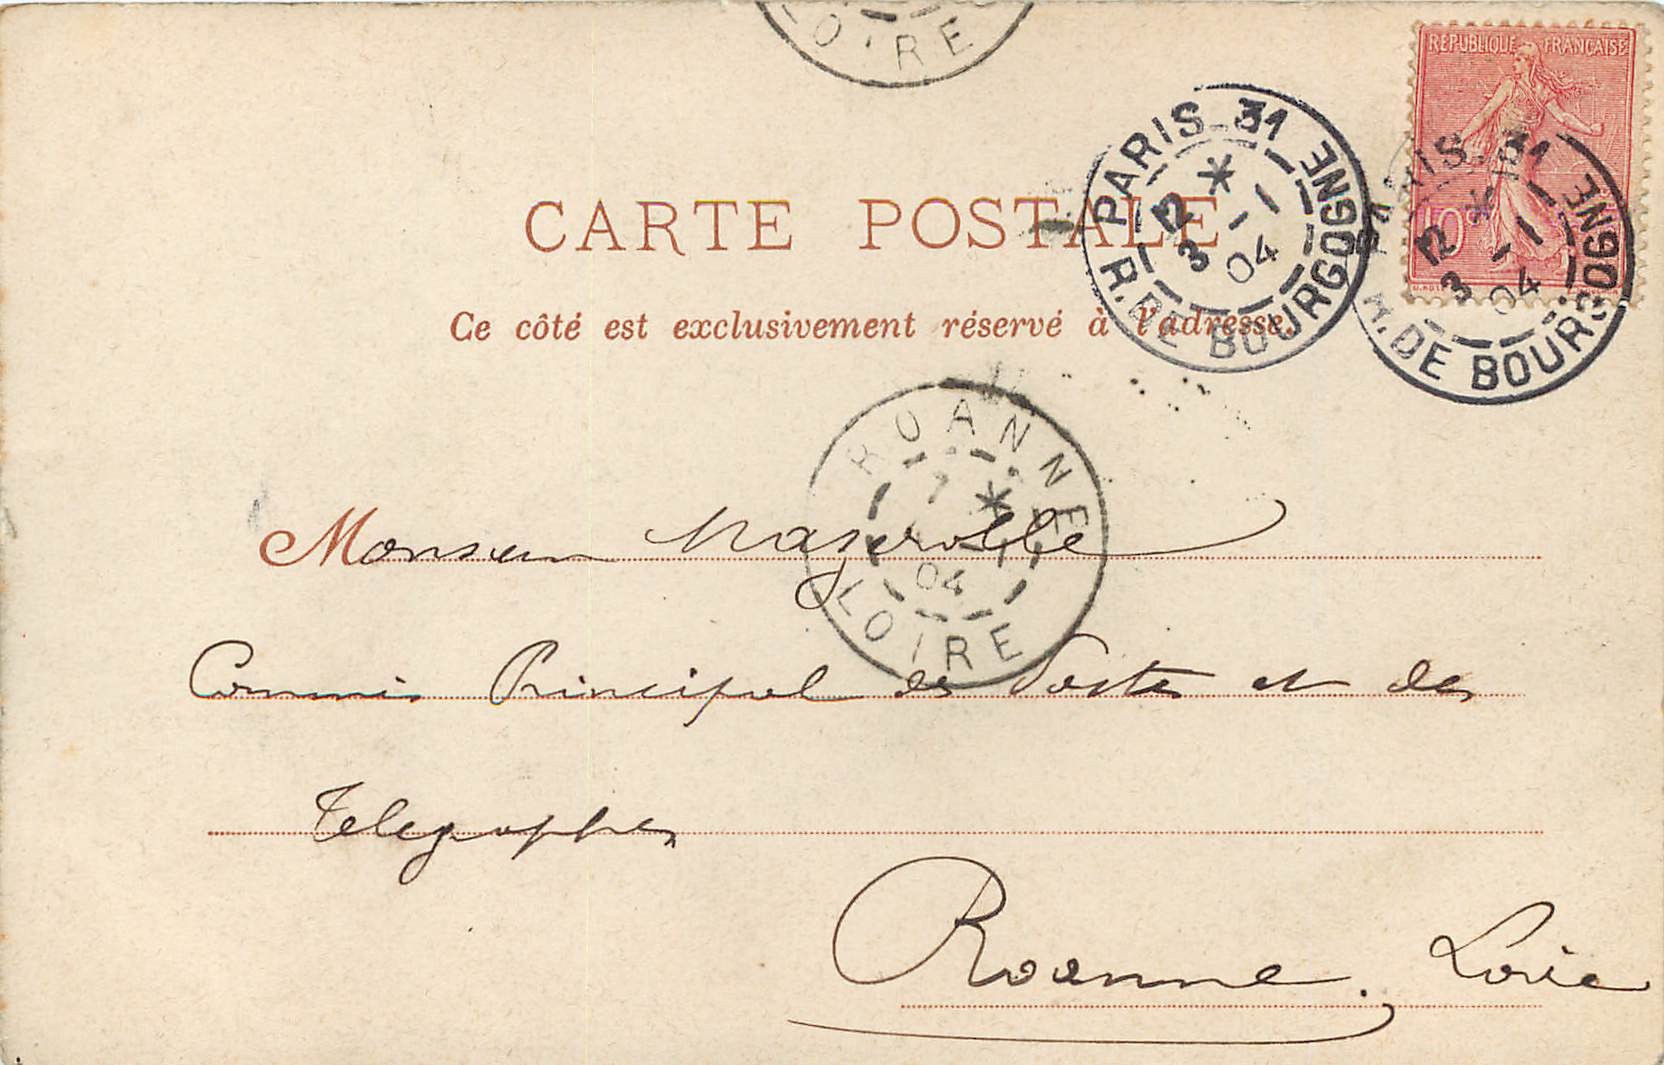 LOIRE
REPUBLIQUE FRANÇAISE
10
PARIS 31
12
3 1
04
R. DE BOURGOGNE
PARIS 31
12
3 1
04
R. DE BOURGOGNE
CARTE POSTALE
Ce côté est exclusivement réservé à l'adresse.
ROANNE
04
LOIRE
Monsieur
Commis Principal des Postes et des
Telegraphes
Roanne. Loire